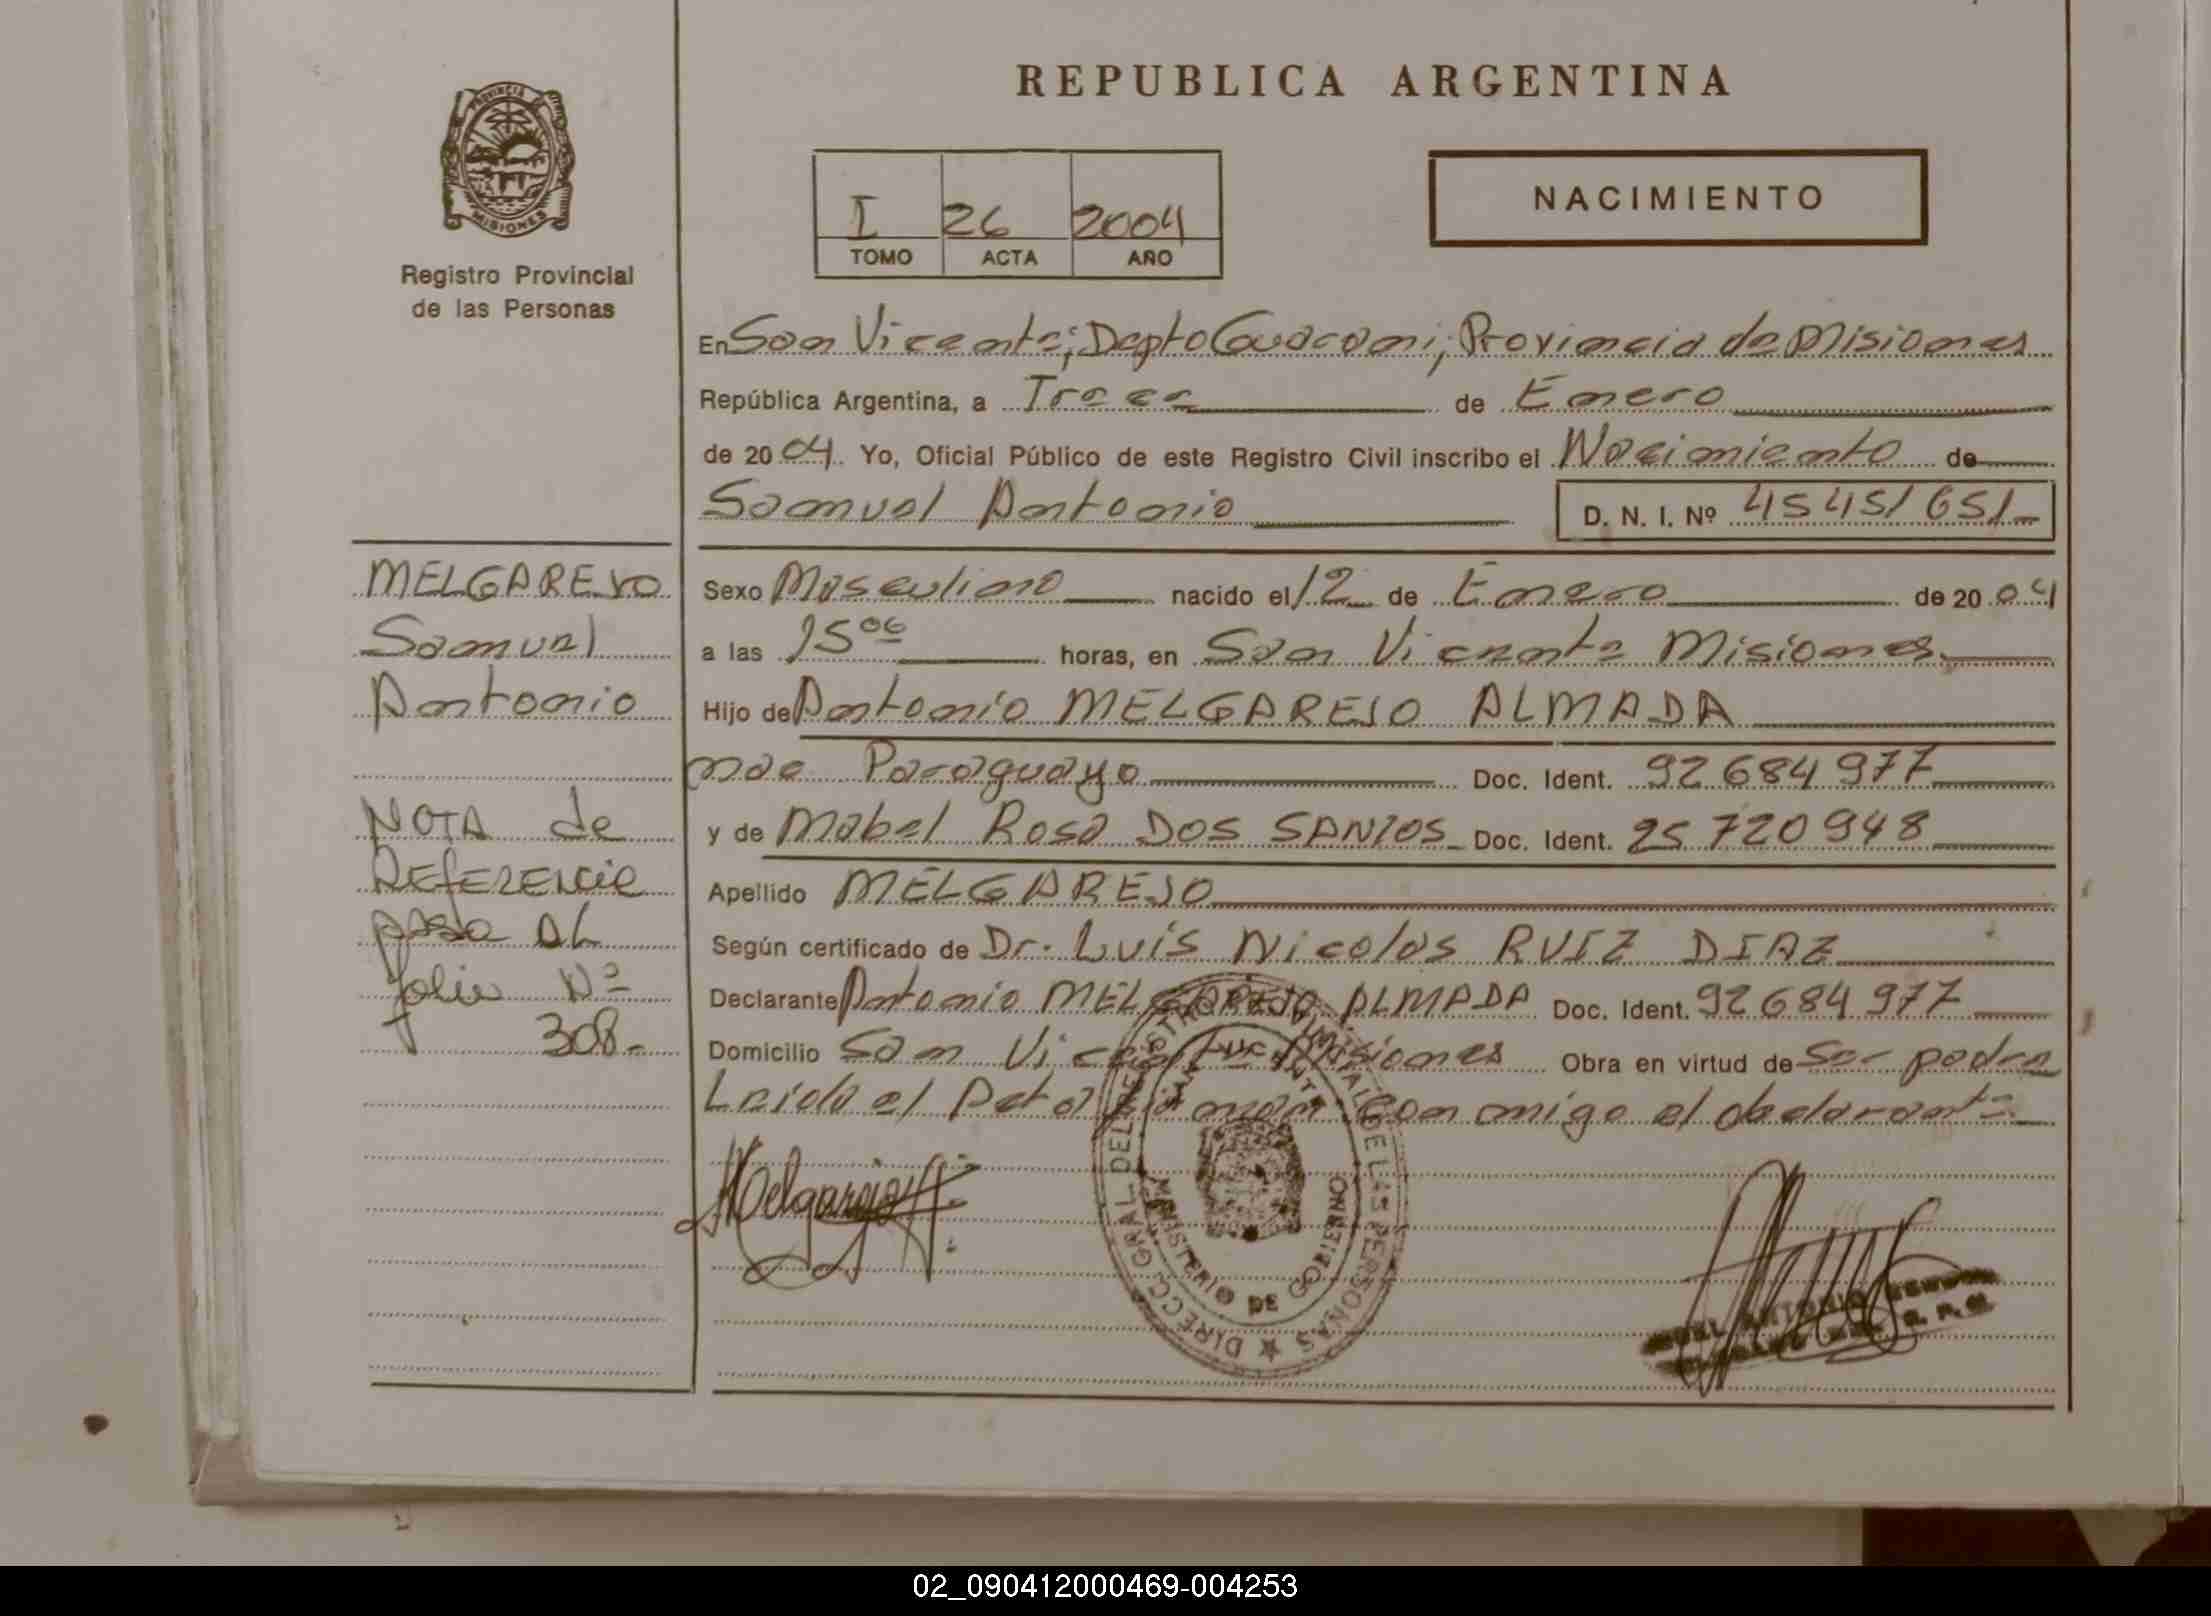 REPUBLICA ARGENTINA
PROVINCIA DE
MISIONES
Registro Provincial
de las Personas
I 26 2004
TOMO ACTA AÑO
NACIMIENTO
En San Vicente; Depto Guarani; Provincia de Misiones
República Argentina, a Trece de Enero
de 2004. Yo, Oficial Público de este Registro Civil inscribo el Nacimiento de
Samuel Antonio D. N. I. Nº 45451651
MELGAREJO
Samuel
Antonio
NOTA de
REFERENCIA
pasa AL
folio Nº
308.-
Sexo Masculino nacido el 12 de Enero de 2004
a las 15 06 horas, en San Vicente Misiones
Hijo de Antonio MELGAREJO ALMADA
nac Paraguayo Doc. Ident. 92 684 977
y de Mabel Rosa DOS SANTOS Doc. Ident. 25 720 948
Apellido MELGAREJO
Según certificado de Dr. Luis Nicolas RUIZ DIAZ
Declarante Antonio MELGAREJO ALMADA Doc. Ident. 92 684 977
Domicilio San Vicente Misiones Obra en virtud de Ser padre
Leida el Acta firman conmigo el declarante
DIRECC. GRAL. DEL REGISTRO PROVINCIAL DE LAS PERSONAS
SAN VICENTE
MINISTERIO DE GOBIERNO
ANTONIO
02_090412000469-004253